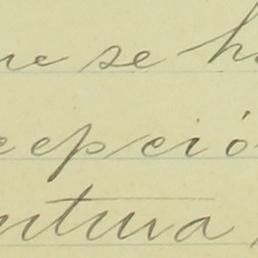 ue se h
cepció
ntura